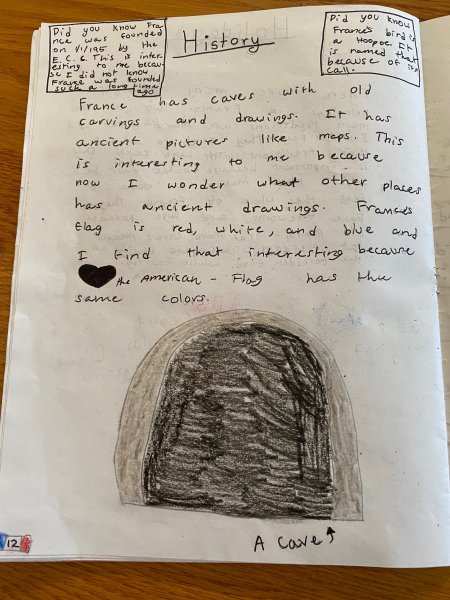 Did you know Fra-
nce was founded
on 1/1/195 by the
E. C. G. This is inter-
esting to me becau
se I did not know
France was founded
such a long time
ago
History
Did you know
France's bird is
a Hoopoe. It
is named that
because of its
call.
France has caves with old
carvings and drawings. It has
ancient pictures like maps. This
is interesting to me because
now I wonder what other places
has ancient drawings. France's
flag is red, white, and blue and
I find that interesting because
the American - Flag has the
same colors.
A cave
12